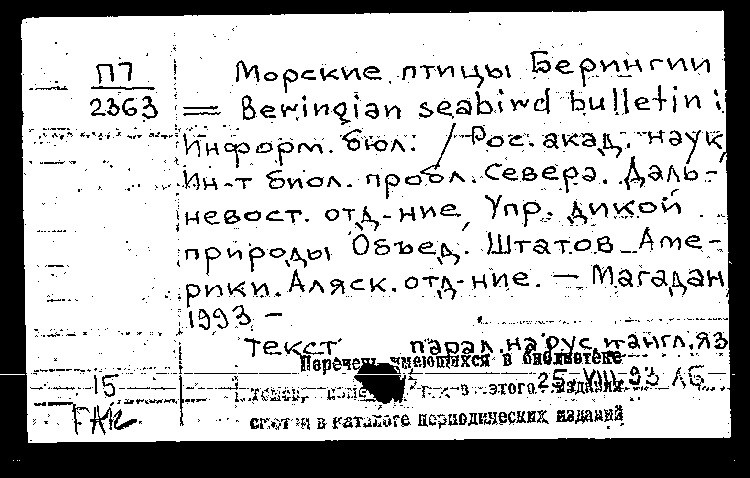 П7
2363
Морские птицы Берингии
= Beringian seabird bulletin :
Информ. бюл. / Рос. акад. наук,
Ин-т биол. пробл. Севера. Даль-
невост. отд-ние, Упр. дикой
природы Объед. Штатов Аме-
рики. Аляск. отд-ние. — Магадан
1993 –
Текст парал. на рус. и англ. яз
Перечень имеющихся в библиотеке
25 VIII 93 ЛБ
15
томов, г. в этого издания
смотри в каталоге периодических изданий